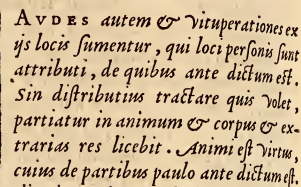 AVDES autem & vituperationes ex
ijs locis ſumentur, qui loci perſonis ſunt
attributi, de quibus ante dictum eſt.
Sin diſtributius tractare quis volet,
partiatur in animum & corpus & ex-
trarias res licebit. Animi eſt virtus,
cuius de partibus paulo ante dictum eſt.